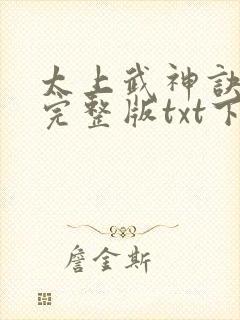 太上武神訣
完整版txt下
詹金斯